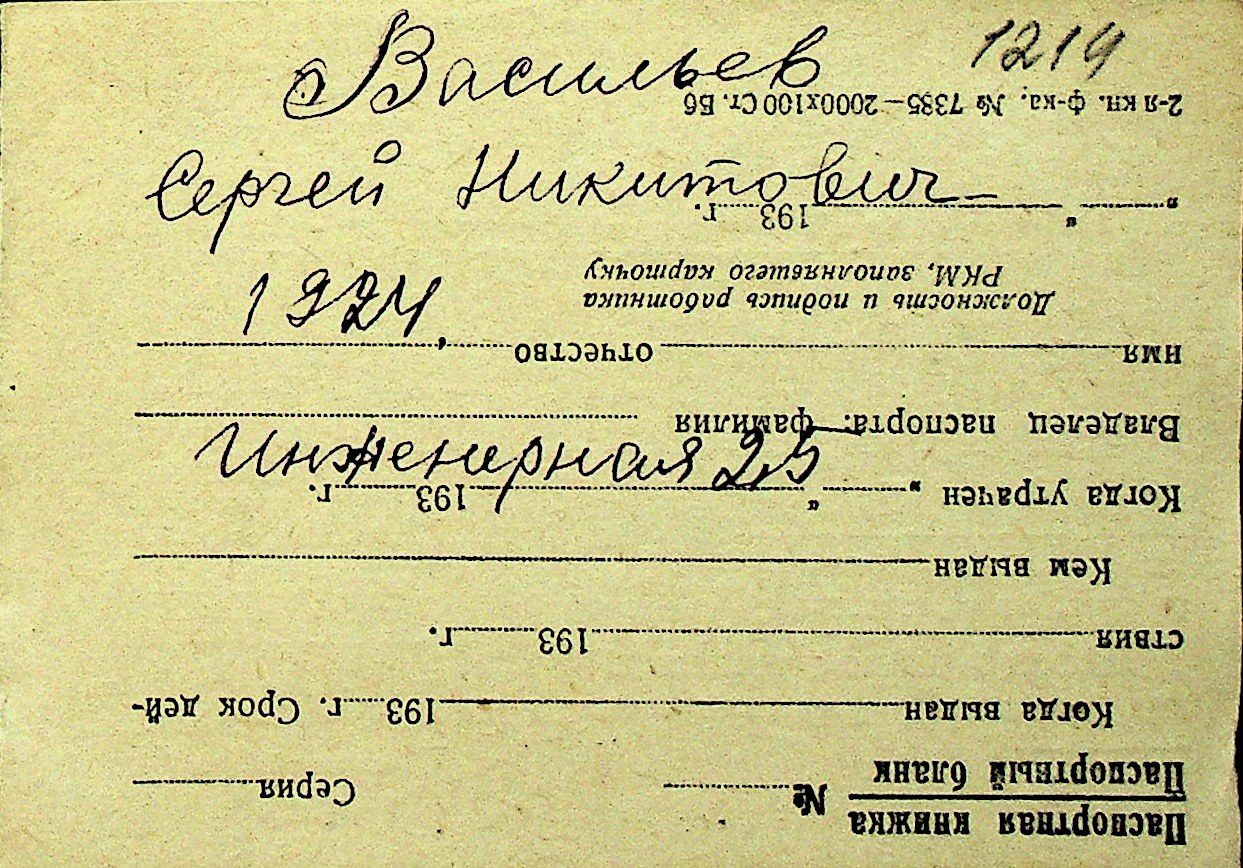 Васильев 1219
Сергей Никитович
1924
Инженерная 25
Паспортная книжка
Паспортный бланк
№ Серия
Когда выдан 193 г. Срок дей-
ствия 193 г.
Кем выдан
Когда утрачен „ “ 193 г.
Владелец паспорта: фамилия
имя отчество
Должность и подпись работника
РКМ, заполняетего карточку
„ “ 193 г.
2-я кн. ф-ка. № 7385—2000х100 Ст. Б6